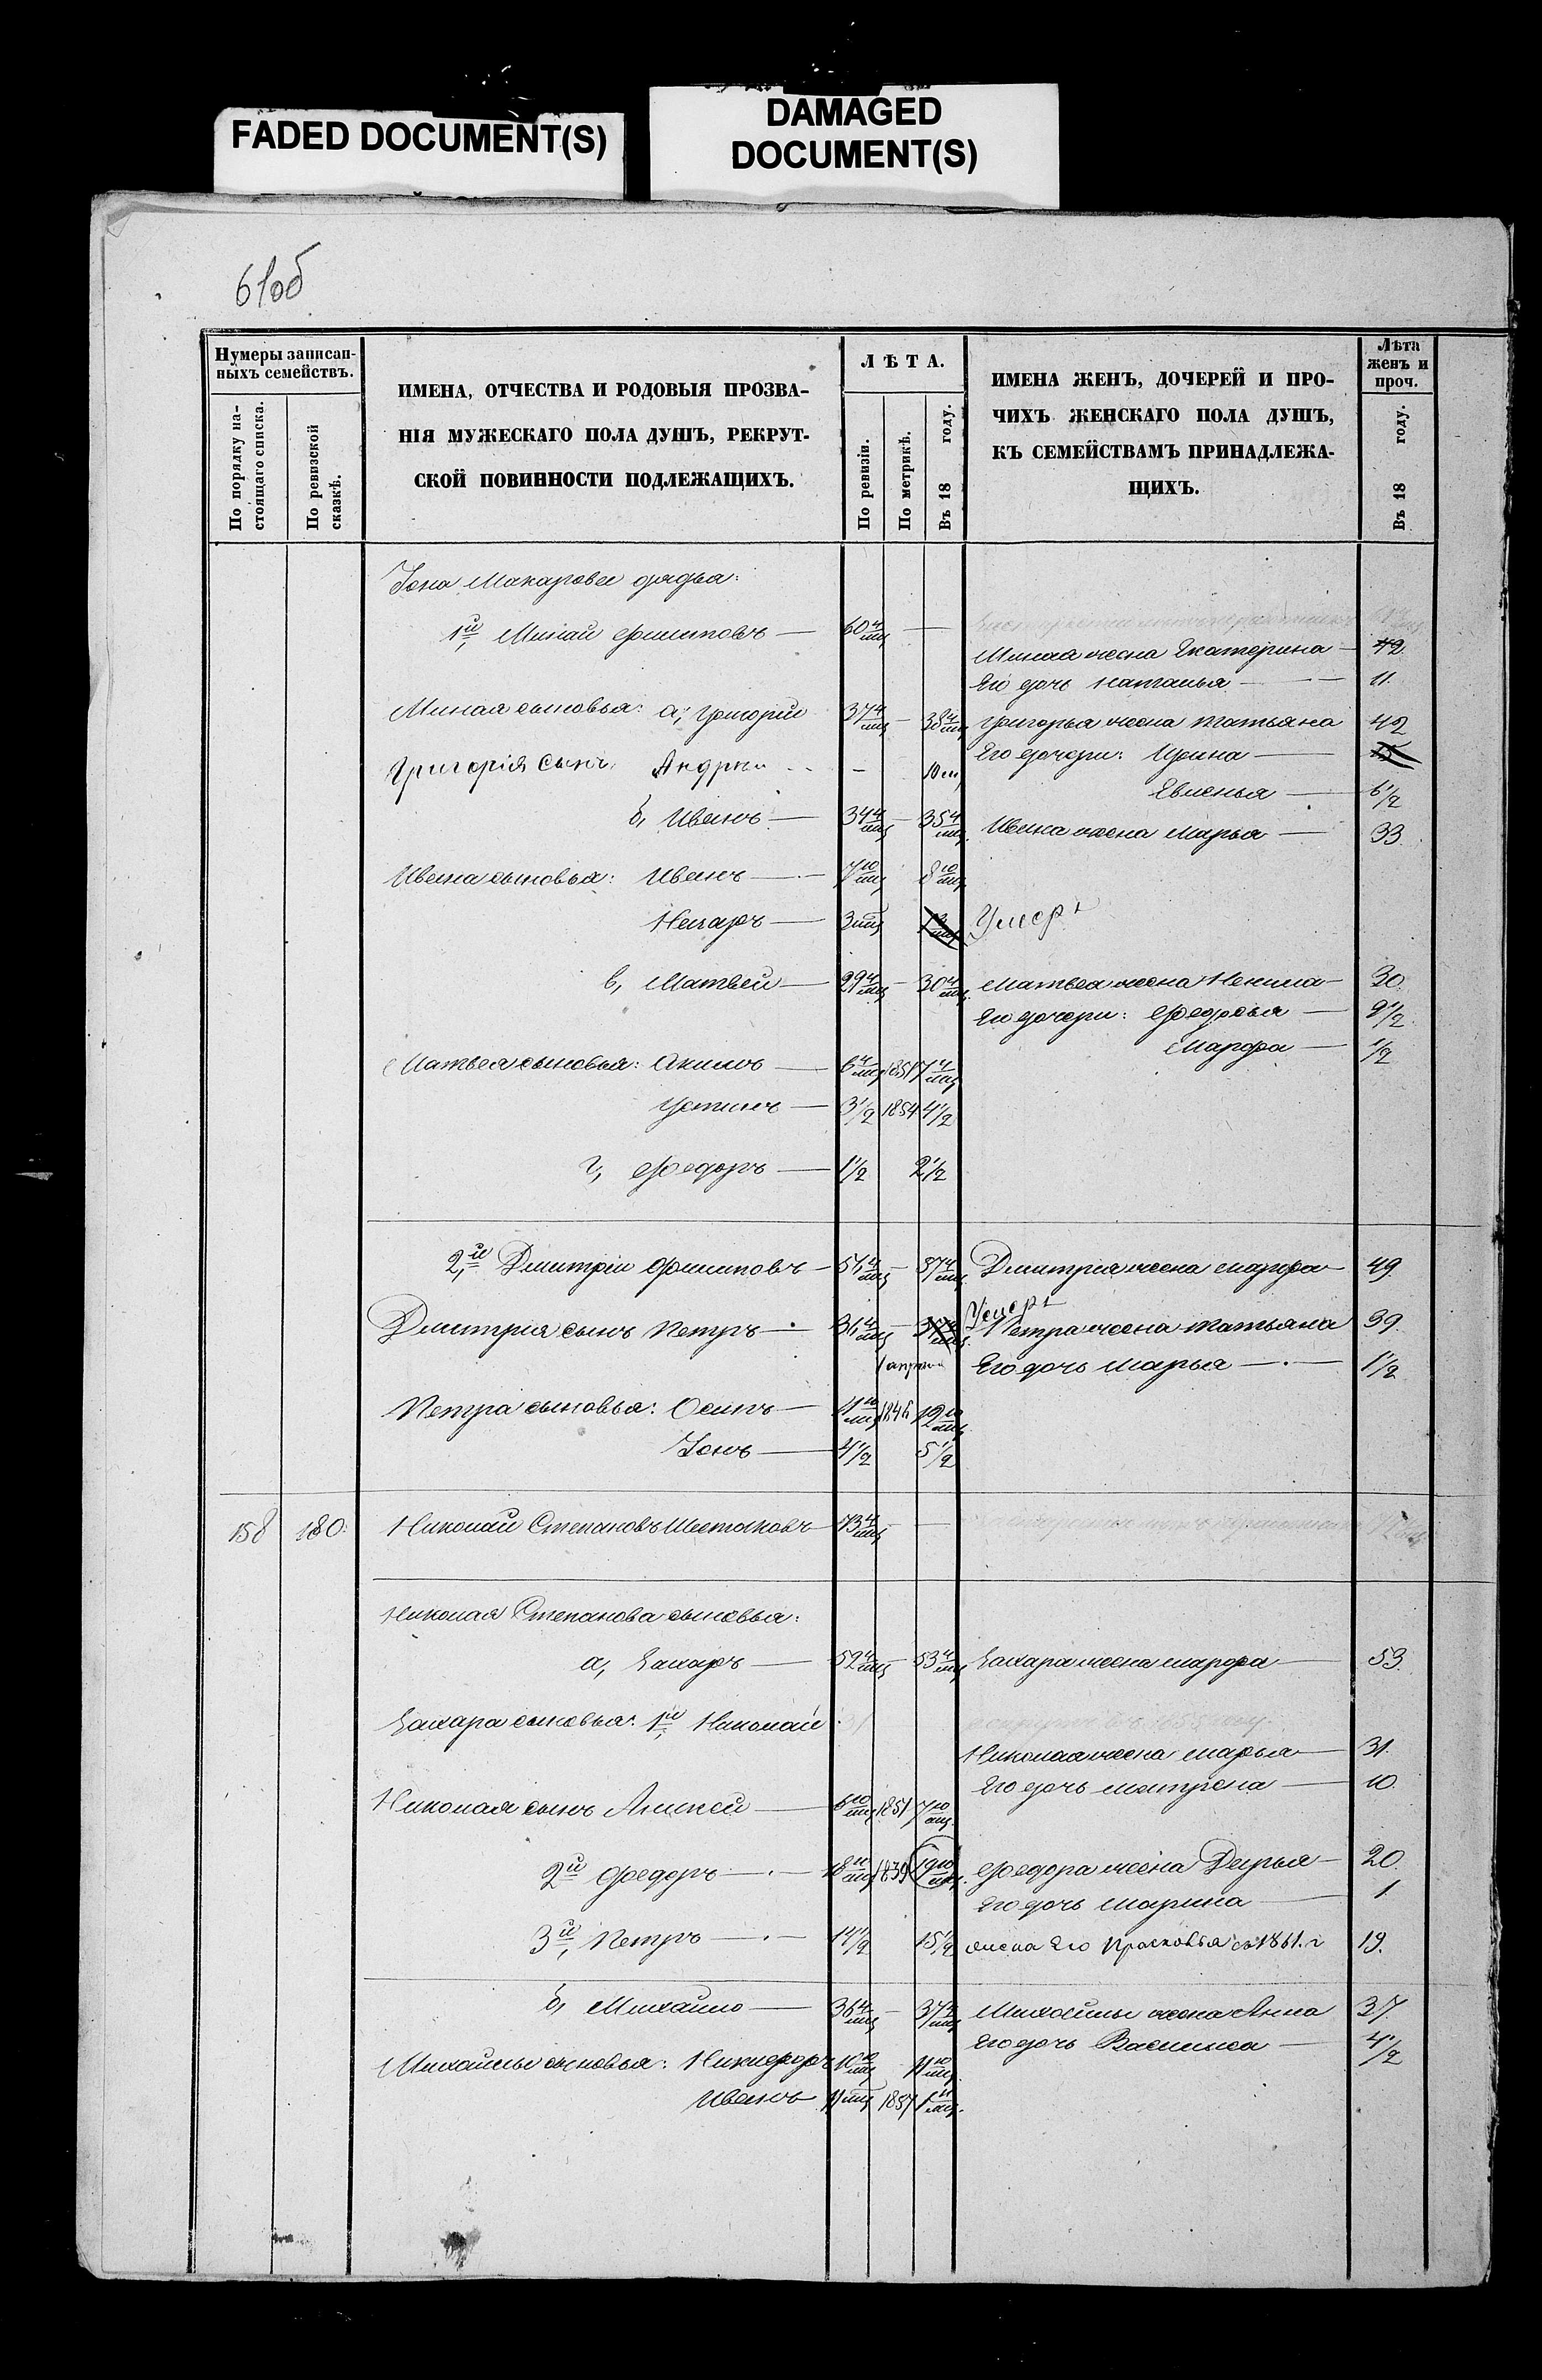 FADED DOCUMENT(S)
DAMAGED
DOCUMENT(S)
61об
Нумеры записан-
ныхъ семействъ.
По порядку на-
стоящаго списка.
По ревизской
сказкѣ.
ИМЕНА, ОТЧЕСТВА И РОДОВЫЯ ПРОЗВА-
НІЯ МУЖЕСКАГО ПОЛА ДУШЪ, РЕКРУТ-
СКОЙ ПОВИННОСТИ ПОДЛЕЖАЩИХЪ.
ЛѢТА.
По ревизіи.
По метрикѣ.
Въ 18 году.
ИМЕНА ЖЕНЪ, ДОЧЕРЕЙ И ПРО-
ЧИХЪ ЖЕНСКАГО ПОЛА ДУШЪ,
КЪ СЕМЕЙСТВАМЪ ПРИНАДЛЕЖА-
ЩИХЪ.
Лѣта
женъ и
проч.
Въ 18 году.
Іона Макаровъ дядья:
1й, Минай Филиповъ — 60 4/мц —
Миная жена Екатерина — 42.
Его дочь Наталья — 11.
Миная сыновья: а, Григорій 37 4/мц — 38 4/мц Григорья жена Татьяна 42
Его дочери: Ирина —
Григорія сынъ Андрей - 10 м,
Евгенья — 6 1/2
б, Иванъ — 34 4/мц — 35 4/мц. Ивана жена Марья — 33.
Ивана сыновья: Иванъ — 7 10/мц 8 10/мц
Назаръ — 3 мц Умеръ
в, Матвей — 29 4/мц — 30 4/мц. Матвея жена 30.
Его дочери: Федосья — 9 1/2.
Марфа — 1/2
Матвея сыновья: Акимъ — 6 4/мц 1851 7 4/мц
Устинъ — 3 1/2 1854 4 1/2
г, Федоръ — 1 1/2 2 1/2
2й, Дмитрій Филиповъ — 56 4/мц — 57 4/мц. Дмитрія жена Марфа — 49.
Умеръ
Дмитрія сынъ Петръ — 36 4/мц — Петра жена Татьяна 39.
Его дочь Марья — 1 1/2
Петра сыновья: Осипъ — 11 10/мц 1846 12 10/мц.
Іонъ — 4 1/2 5 1/2
158 180. Николай Степановъ Шестаковъ 73 4/мц — —
Николая Степанова сыновья:
а, Захаръ — 52 4/мц — 53 4/мц Захара жена Марфа — 53.
Захара сыновья: 1й, Николай
Николая жена Марья — 31.
Его дочь Матрена — 10.
Николая сынъ Алексей — 6 10/мц 1851 7 10/мц.
2й Федоръ — 18 10/мц 1839 19 10/мц. Федора жена Дарья — 20.
Его дочь Марина — 1.
3й, Петръ — 14 1/2 15 1/2 жена Его Прасковья съ 1861. г 19.
б, Михайло — 36 4/мц — 37 4/мц Михайлы жена Анна 37.
Его дочь Василиса — 4 1/2
Михайлы сыновья: Никифоръ 10 10/мц 11 10/мц.
Иванъ 11 мц 1857 1 11/мц.